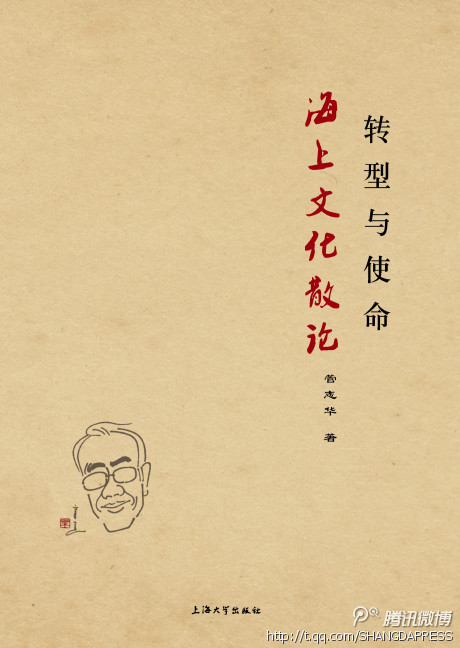 转型与使命
海上文化散论
管志华 著
上海大学出版社
腾讯微博
http://t.qq.com/SHANGDAPRESS